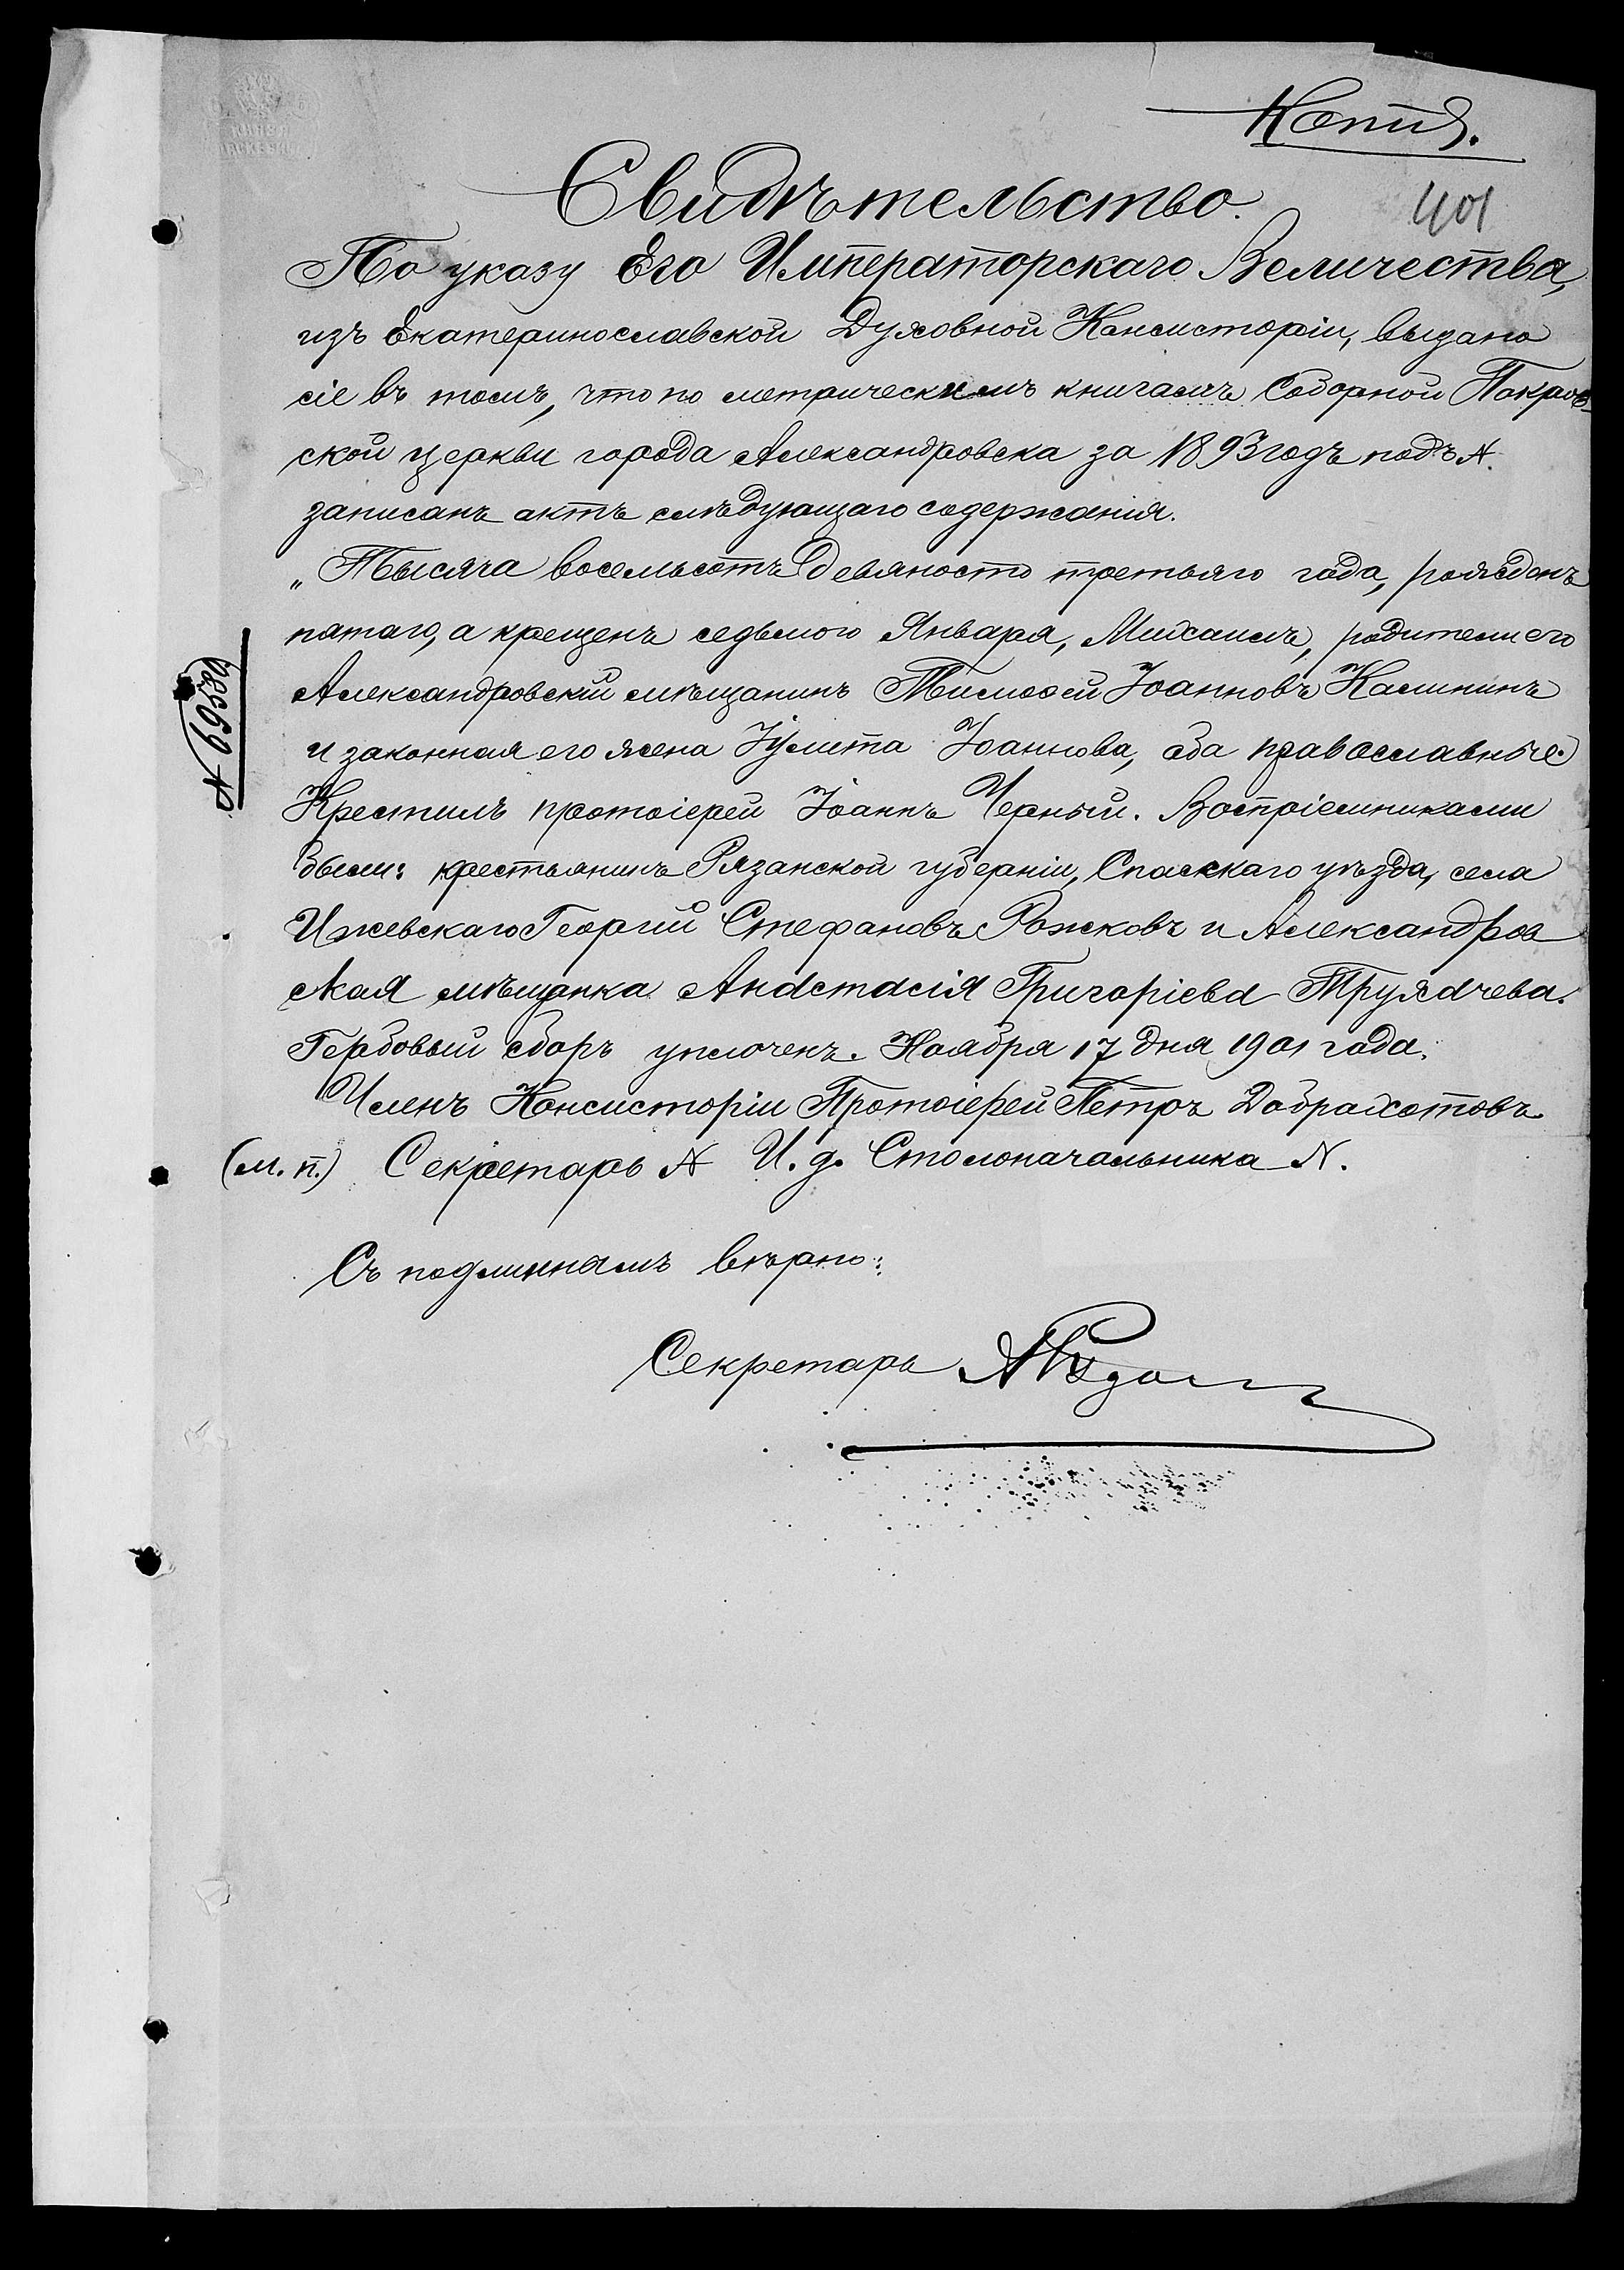 Копія.
401
Свидѣтельство.
По указу Его Императорскаго Величества,
изъ Екатеринославской Духовной Консисторіи, выдано
сіе въ томъ, что по метрическимъ книгамъ Соборной Покров-
ской церкви города Александровска за 1893 годъ подъ №
записанъ актъ слѣдующаго содержанія.
„Тысяча восемьсотъ девяносто третьяго года, рожденъ
пятаго, а крещенъ седьмого Января, Михаилъ, родители его
Александровскій мѣщанинъ Тимоѳей Іоанновъ Калининъ
и законная его жена Іулита Іоаннова, оба православные.
Крестилъ протоіерей Іоаннъ Черный. Воспріемниками
были: крестьянинъ Рязанской губерніи, Спасскаго уѣзда, села
Ижевскаго Георгій Стефановъ Рожковъ и Александров
ская мѣщанка Анастасія Григоріева Тружачева.
Гербовый сборъ уплоченъ. Ноября 17 дня 1901 года.
Членъ Консисторіи Протоіерей Петръ Доброхотовъ
(М. п.) Секретарь N И. д. Столоначальника N.
№ 69580
Съ подлиннымъ вѣрно:
Секретарь